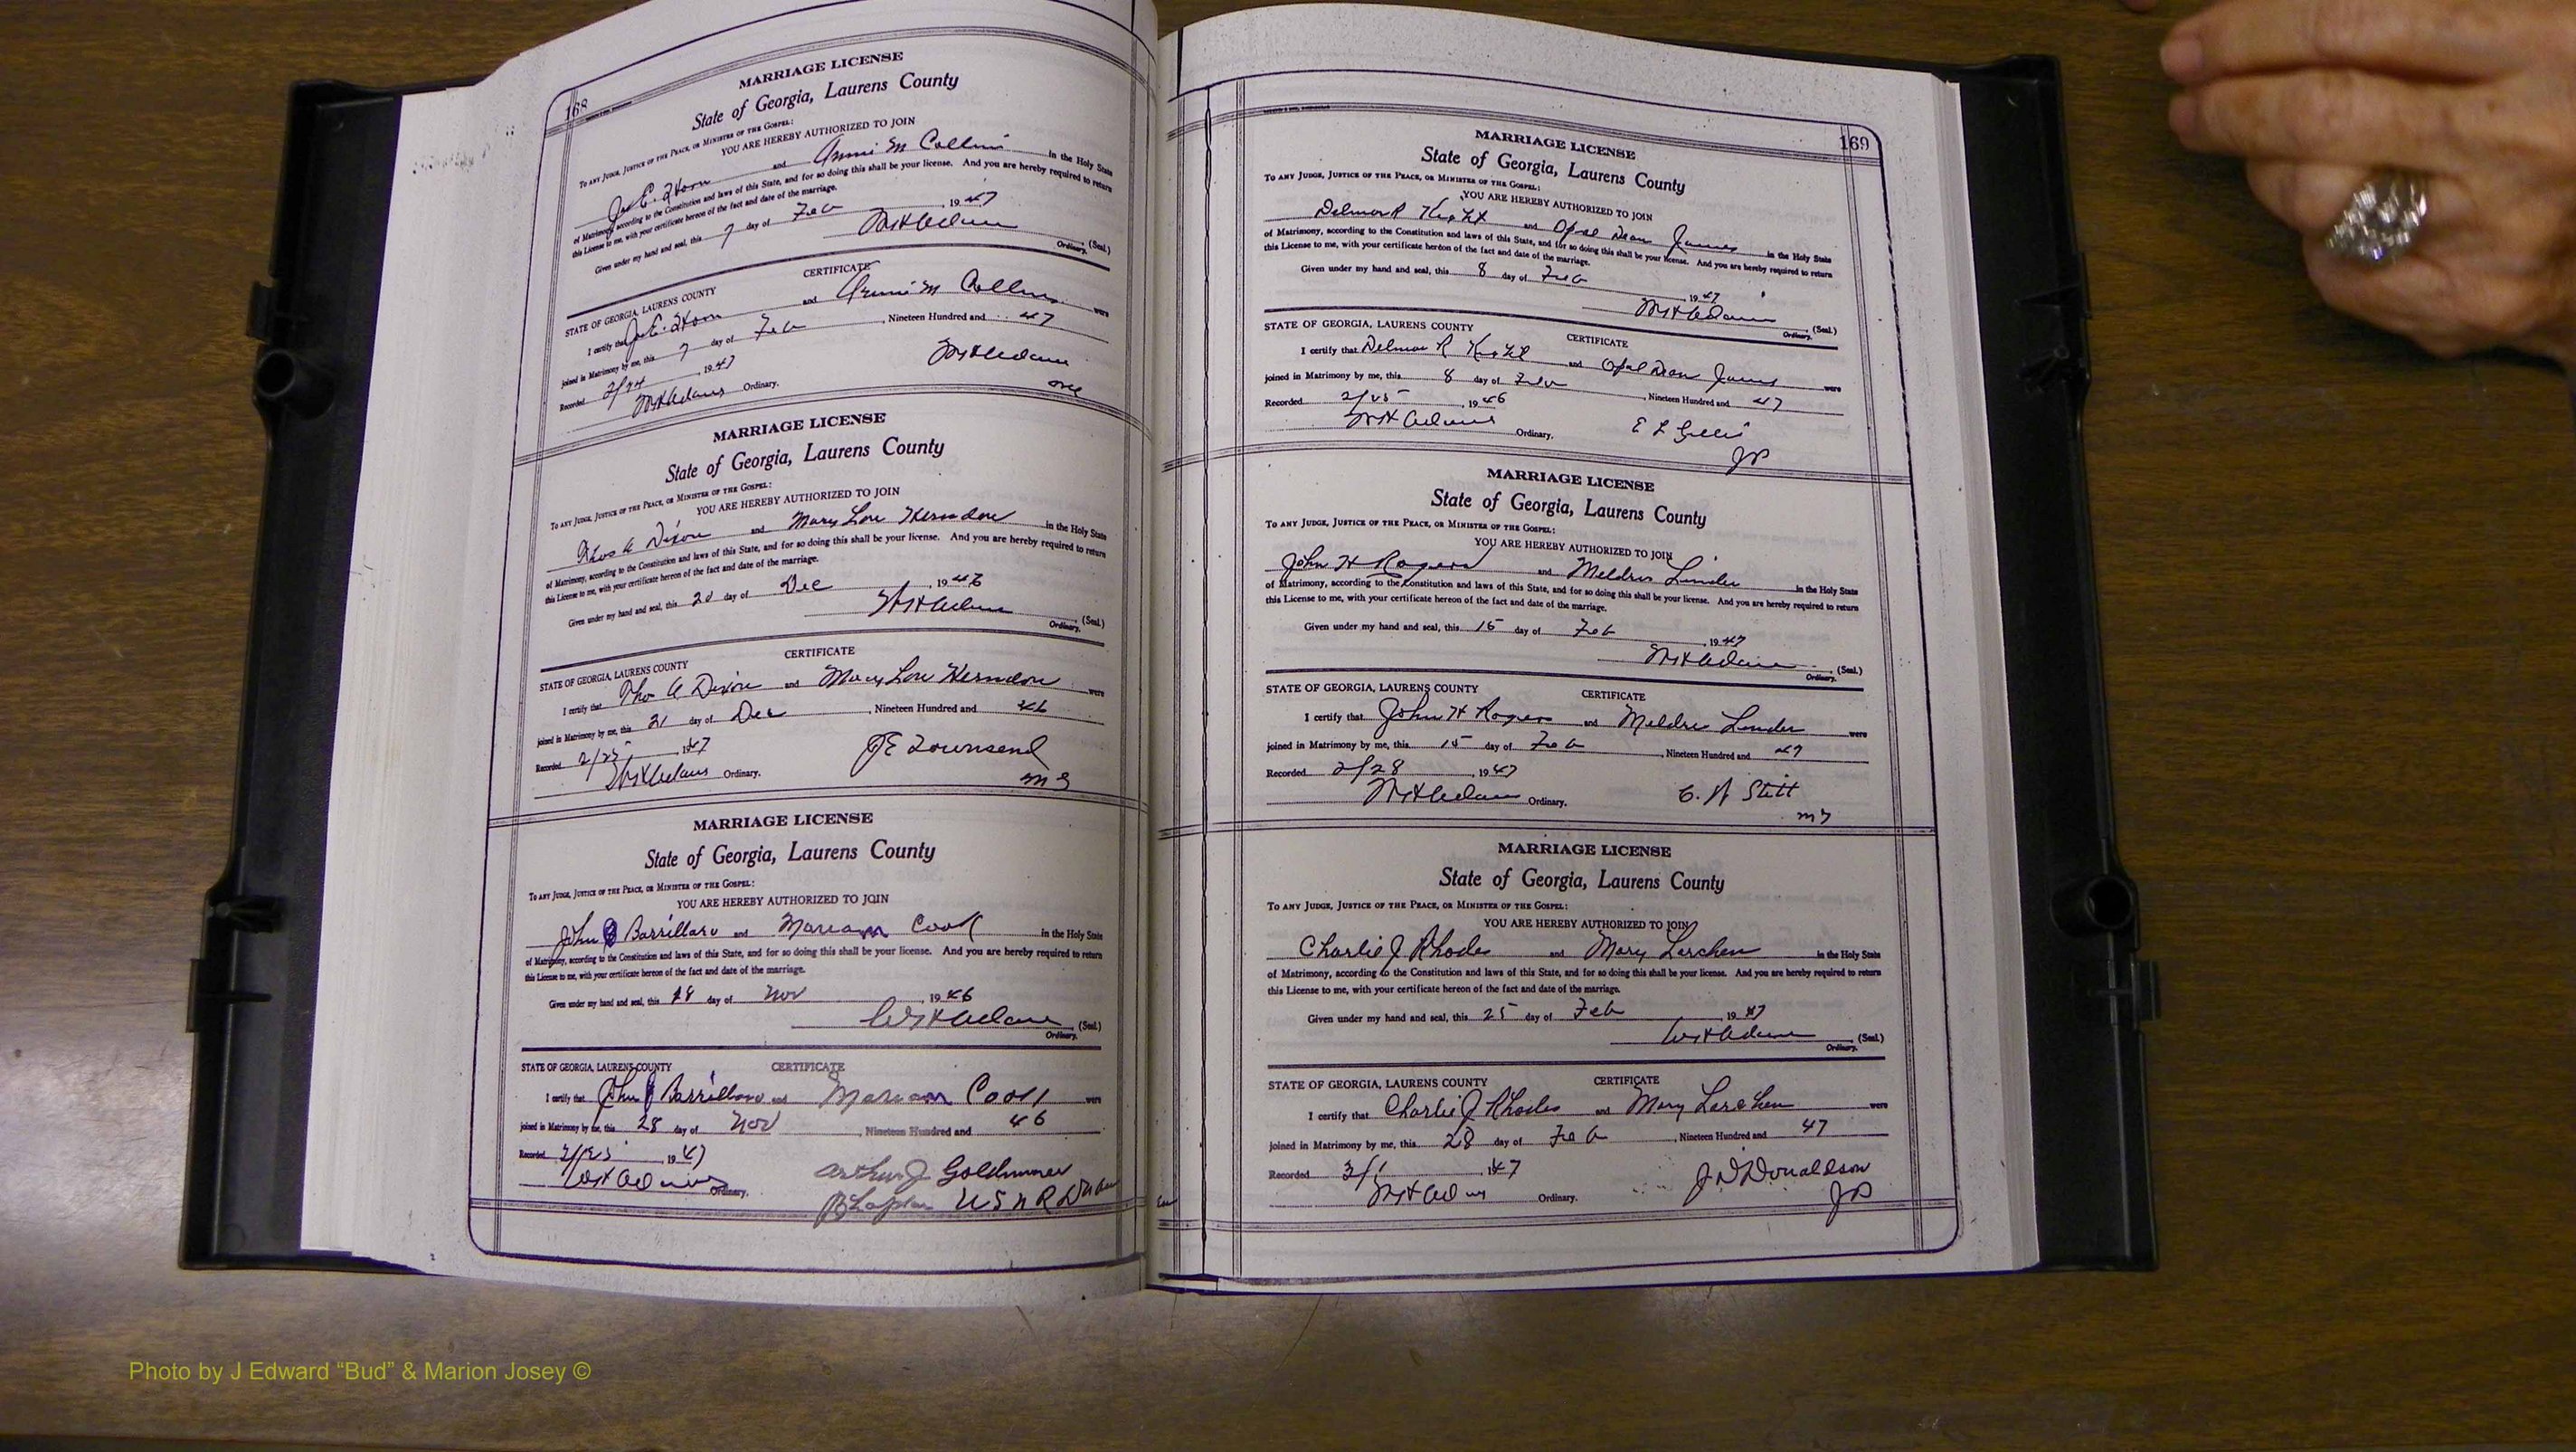 168
MARRIAGE LICENSE
State of Georgia, Laurens County
TO ANY JUDGE, JUSTICE OF THE PEACE, OR MINISTER OF THE GOSPEL:
YOU ARE HEREBY AUTHORIZED TO JOIN
and Annie M Collins in the Holy State
of Matrimony, according to the Constitution and laws of this State, and for so doing this shall be your license. And you are hereby required to return
this License to me, with your certificate hereon of the fact and date of the marriage.
Given under my hand and seal, this 7 day of Feb, 1947
(Seal.)
Ordinary.
CERTIFICATE
STATE OF GEORGIA, LAURENS COUNTY
I certify that and Annie M Collins were
joined in Matrimony by me, this 7 day of Feb, Nineteen Hundred and 47
Recorded 2/24, 1947
Ordinary.
MARRIAGE LICENSE
State of Georgia, Laurens County
TO ANY JUDGE, JUSTICE OF THE PEACE, OR MINISTER OF THE GOSPEL:
YOU ARE HEREBY AUTHORIZED TO JOIN
Thos A Dixon and Mary Lou Herndon in the Holy State
of Matrimony, according to the Constitution and laws of this State, and for so doing this shall be your license. And you are hereby required to return
this License to me, with your certificate hereon of the fact and date of the marriage.
Given under my hand and seal, this 20 day of Dec, 1946
W H Adams (Seal.)
Ordinary.
CERTIFICATE
STATE OF GEORGIA, LAURENS COUNTY
I certify that Tho A Dixon and Mary Lou Herndon were
joined in Matrimony by me, this 21 day of Dec, Nineteen Hundred and 46
Recorded 2/25, 1947
W H Adams Ordinary.
J E Townsend
M G
MARRIAGE LICENSE
State of Georgia, Laurens County
TO ANY JUDGE, JUSTICE OF THE PEACE, OR MINISTER OF THE GOSPEL:
YOU ARE HEREBY AUTHORIZED TO JOIN
John Barrillaro and Mariam Cook in the Holy State
of Matrimony, according to the Constitution and laws of this State, and for so doing this shall be your license. And you are hereby required to return
this License to me, with your certificate hereon of the fact and date of the marriage.
Given under my hand and seal, this 18 day of Nov, 1946
W H Adams (Seal.)
Ordinary.
STATE OF GEORGIA, LAURENS COUNTY CERTIFICATE
I certify that John Barrillaro and Mariam Cook were
joined in Matrimony by me, this 28 day of Nov, Nineteen Hundred and 46
Recorded 2/25, 1947
W H Adams Ordinary.
Arthur J
Chaplain USNR
169
MARRIAGE LICENSE
State of Georgia, Laurens County
TO ANY JUDGE, JUSTICE OF THE PEACE, OR MINISTER OF THE GOSPEL:
YOU ARE HEREBY AUTHORIZED TO JOIN
Delmar R Knight and Opal Dean James in the Holy State
of Matrimony, according to the Constitution and laws of this State, and for so doing this shall be your license. And you are hereby required to return
this License to me, with your certificate hereon of the fact and date of the marriage.
Given under my hand and seal, this 8 day of Feb 1947
W H Adams (Seal.)
Ordinary.
STATE OF GEORGIA, LAURENS COUNTY CERTIFICATE
I certify that Delmar R Knight and Opal Dean James were
joined in Matrimony by me, this 8 day of Feb, Nineteen Hundred and 47
Recorded 2/25, 1946
W H Adams Ordinary.
E L
JP
MARRIAGE LICENSE
State of Georgia, Laurens County
TO ANY JUDGE, JUSTICE OF THE PEACE, OR MINISTER OF THE GOSPEL:
YOU ARE HEREBY AUTHORIZED TO JOIN
John H Rogers and Meldris Linder in the Holy State
of Matrimony, according to the Constitution and laws of this State, and for so doing this shall be your license. And you are hereby required to return
this License to me, with your certificate hereon of the fact and date of the marriage.
Given under my hand and seal, this 15 day of Feb, 1947
W H Adams (Seal.)
Ordinary.
STATE OF GEORGIA, LAURENS COUNTY CERTIFICATE
I certify that John H Rogers and Meldris Linder were
joined in Matrimony by me, this 15 day of Feb, Nineteen Hundred and 47
Recorded 2/28, 1947
W H Adams Ordinary.
Stitt
MG
MARRIAGE LICENSE
State of Georgia, Laurens County
TO ANY JUDGE, JUSTICE OF THE PEACE, OR MINISTER OF THE GOSPEL:
YOU ARE HEREBY AUTHORIZED TO JOIN
Charlie J Rhodes and Mary Lerchen in the Holy State
of Matrimony, according to the Constitution and laws of this State, and for so doing this shall be your license. And you are hereby required to return
this License to me, with your certificate hereon of the fact and date of the marriage.
Given under my hand and seal, this 25 day of Feb, 1947
W H Adams (Seal.)
Ordinary.
STATE OF GEORGIA, LAURENS COUNTY CERTIFICATE
I certify that Charlie J Rhodes and Mary Lerchen were
joined in Matrimony by me, this 28 day of Feb, Nineteen Hundred and 47
Recorded 3/1, 1947
W H Adams Ordinary.
J D Donaldson
JP
Photo by J Edward “Bud” & Marion Josey ©